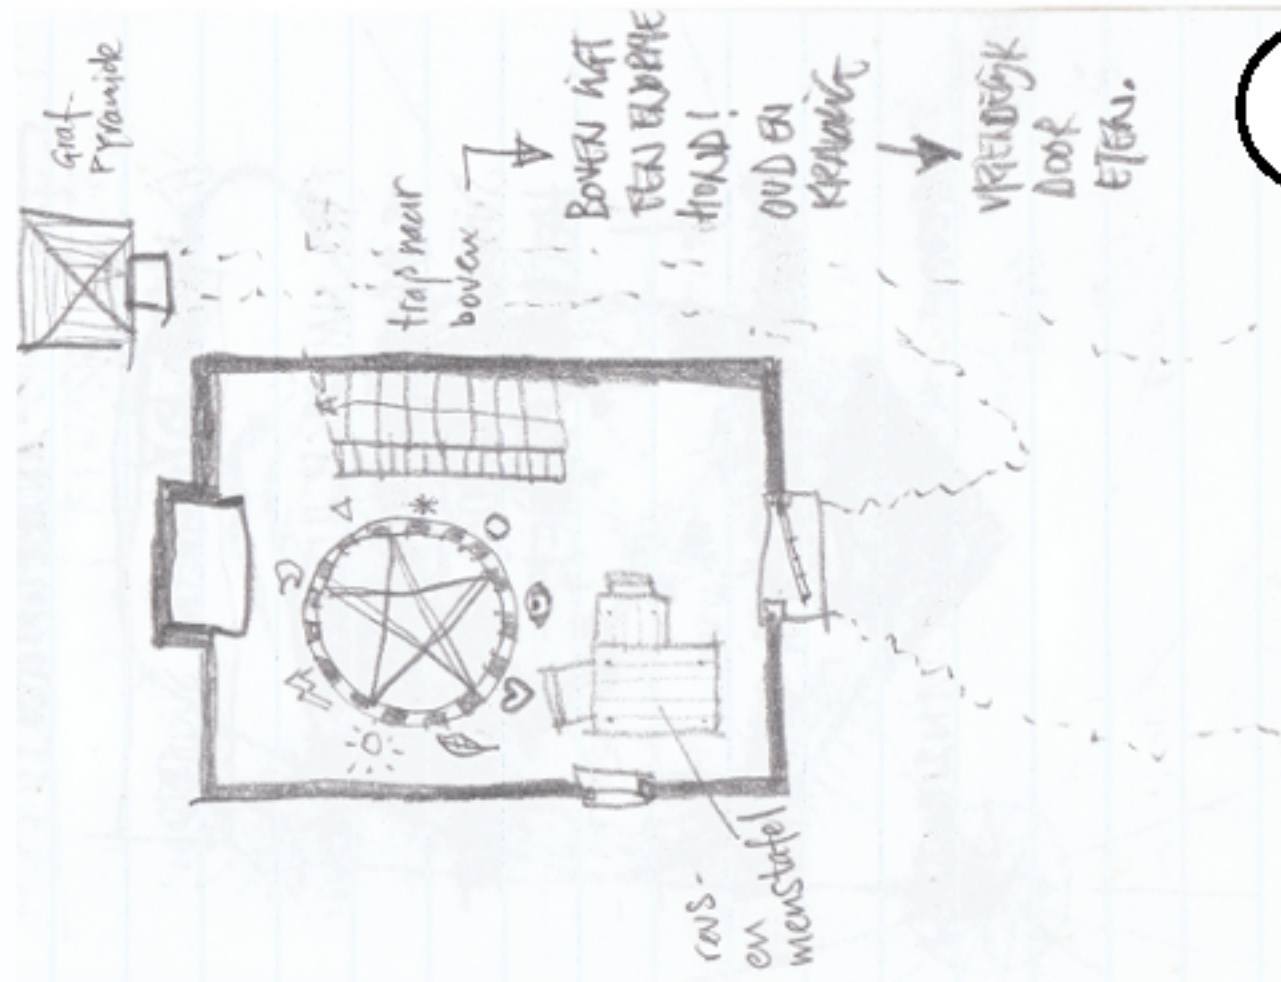 Graf-
Pyramide
trap naar
boven
BOVEN LIGT
EEN ENORME
HOND!
OUD EN
VRIENDELIJK
DOOR
ETEN.
reus-
en
menstafel